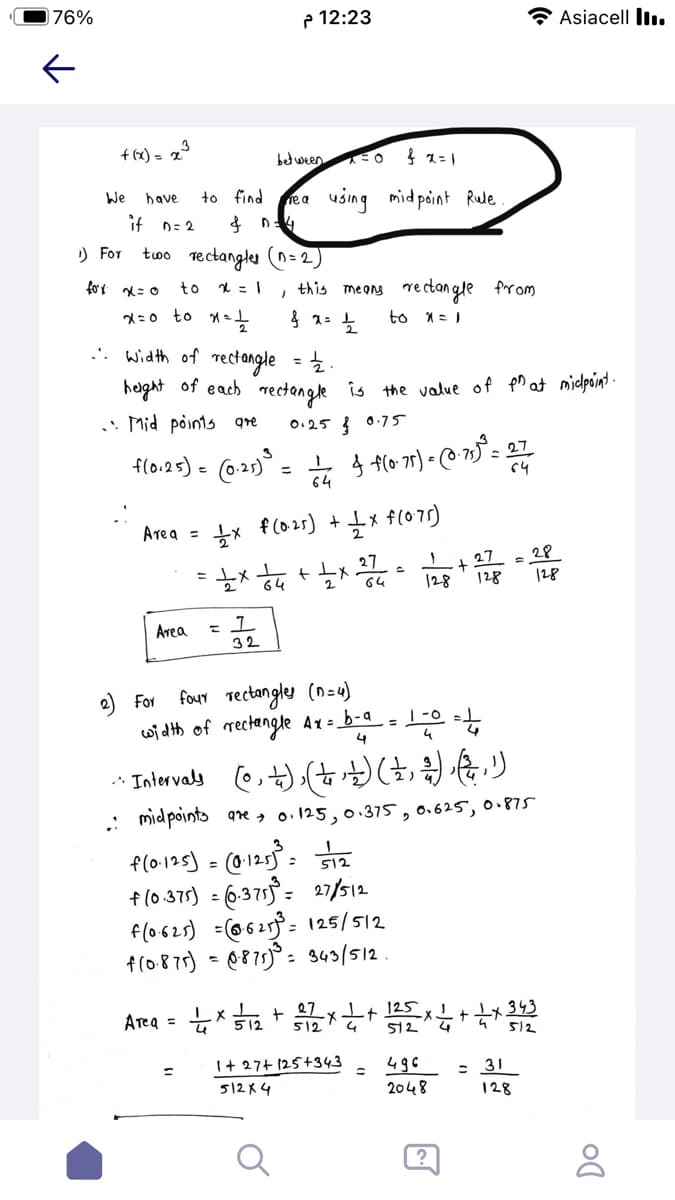 76%
م 12:23
Asiacell
f(x) = x³ between x=0 & x=1
We have to find area using midpoint Rule.
if n=2 & n=4
1) For two rectangles (n=2)
for x=0 to x=1, this means rectangle from
x=0 to x=1/2 & x=1/2 to x=1
∴ Width of rectangle = 1/2.
height of each rectangle is the value of fⁿ at midpoint.
∴ Mid points are 0.25 & 0.75
f(0.25) = (0.25)³ = 1/64 & f(0.75) = (0.75)³ = 27/64
∴ Area = 1/2 × f(0.25) + 1/2 × f(0.75)
= 1/2 × 1/64 + 1/2 × 27/64 = 1/128 + 27/128 = 28/128
Area = 7/32
2) For four rectangles (n=4)
width of rectangle Δx = b-a/4 = 1-0/4 = 1/4
∴ Intervals (0, 1/4), (1/4, 1/2) (1/2, 3/4), (3/4, 1)
∴ midpoints are → 0.125, 0.375, 0.625, 0.875
f(0.125) = (0.125)³ = 1/512
f(0.375) = (0.375)³ = 27/512
f(0.625) = (0.625)³ = 125/512
f(0.875) = (0.875)³ = 343/512.
Area = 1/4 × 1/512 + 27/512 × 1/4 + 125/512 × 1/4 + 1/4 × 343/512
= 1+27+125+343/512×4 = 496/2048 = 31/128